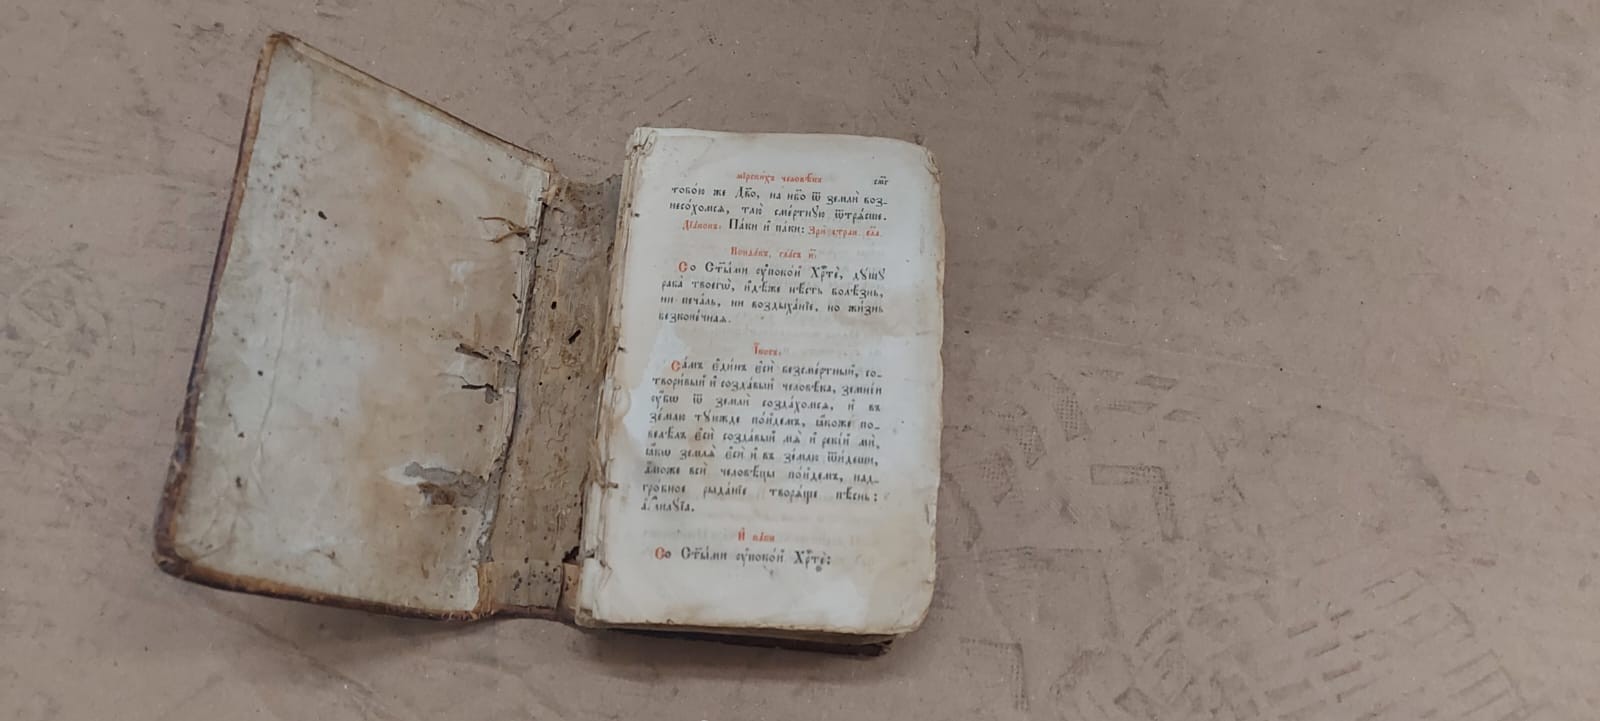 мїрски́хъ человѣ́къ сме҃г
тобо́ю же Дв҃о, на нб҃о ѿ землѝ воз-
несо́хомсѧ, тлю̀ сме́ртнꙋю ѿтрѧ́сше.
Дїа́конъ: Па́ки и҆ па́ки: Зрѝ стран.
Конда́къ, гла́съ и҃:
Со Ст҃ы́ми ᲂу҆поко́й Хрⷭ҇тѐ, дꙋ́шꙋ
раба̀ твоегѡ̀, и҆дѣ́же нѣ́сть болѣ́знь,
ни печа́ль, ни воздыха́нїе, но жи́знь
безконе́чнаѧ.
І҆́косъ:
Са́мъ є҆ди́нъ є҆сѝ безсме́ртный, со-
твори́вый и҆ созда́вый человѣ́ка, земні́и
ᲂу҆́бѡ ѿ землѝ созда́хомсѧ, и҆ въ
зе́млю тꙋ́южде по́йдемъ, ꙗ҆́коже по-
велѣ́лъ є҆сѝ созда́вый мѧ̀ и҆ реки́й мѝ,
ꙗ҆́кѡ землѧ̀ є҆сѝ и҆ въ зе́млю ѿи́деши,
а҆́може всѝ человѣ́цы по́йдемъ, над-
гро́бное рыда́нїе творѧ́ще пѣ́снь:
а҆ллилꙋ́їа.
И҆ па́ки
Со Ст҃ы́ми ᲂу҆поко́й Хрⷭ҇тѐ: